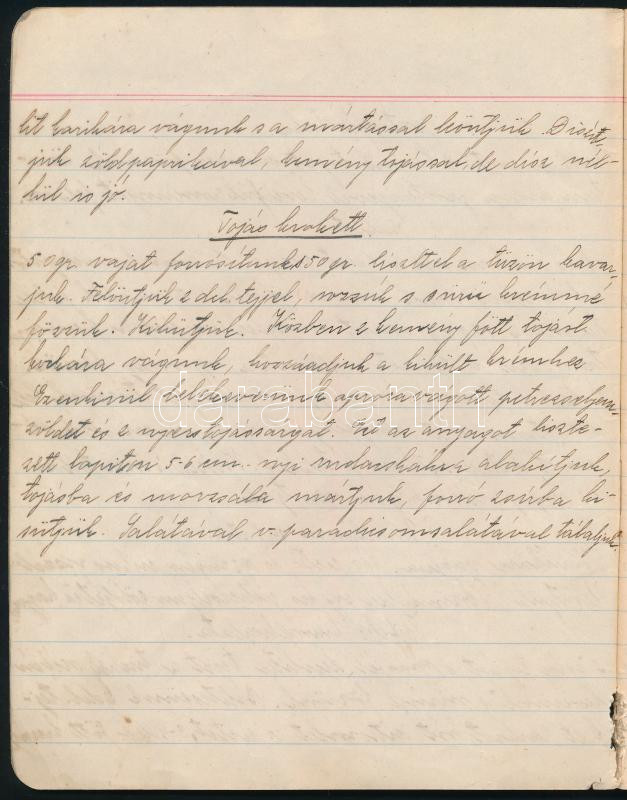 két karikára vágunk s a mártással leöntjük. Diszít-
jük zöldpaprikával, kemény tojással, de disz nél-
kül is jó.
Tojás krokett.
50 gr. vajat forrósítunk s 50 gr. liszttel a tüzön kavar-
juk. Felöntjük 2 del. tejjel, sozzuk s sürü krémmé
főzzük. Kihütjük. Közben 2 kemény főtt tojást
kockára vágunk, hozzáadjuk a kihült krémhez
Ezenkivül belekeverünk aprora vágott petrezselyem-
zöldet és 2 nyers tojássárgát. Ez az anyagot liszte-
zett lapiton 5-6 cm. nyi rudacskákra alakítjuk,
tojásba és morzsába mártjuk, forró zsírba ki-
sütjük. Salátával v. paradicsomsalátával tálaljuk.
darabanth